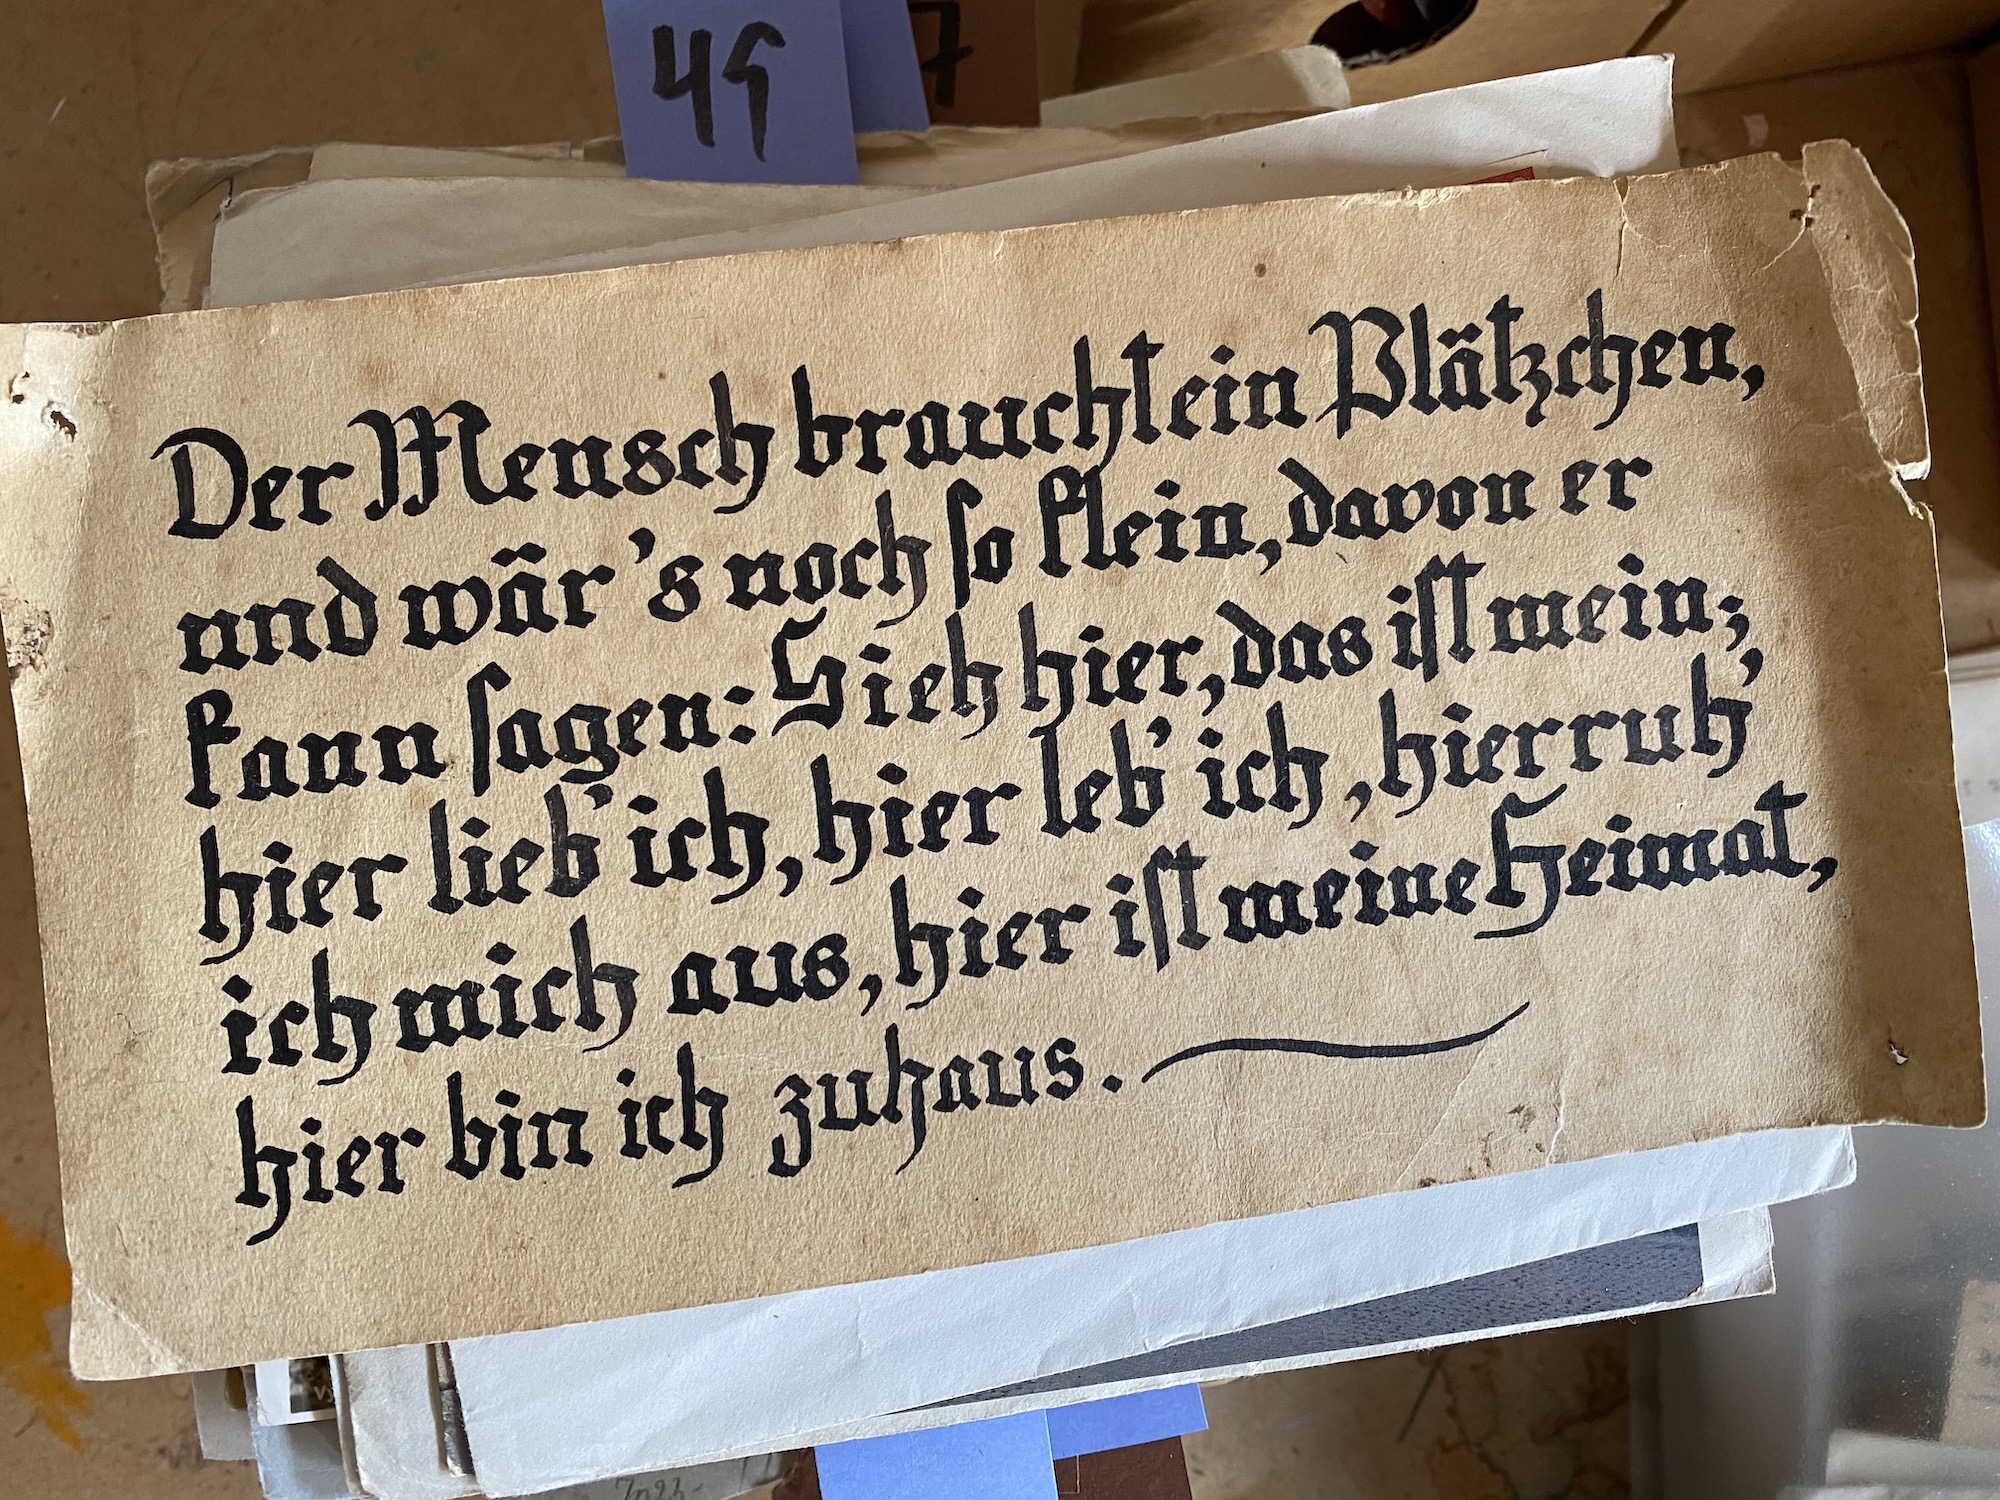 49
7
Der Mensch braucht ein Plätzchen,
und wär's noch so klein, davon er
kann sagen: Sieh hier, das ist mein;
hier lieb' ich, hier leb' ich, hier ruh'
ich mich aus, hier ist meine Heimat,
hier bin ich zuhaus.